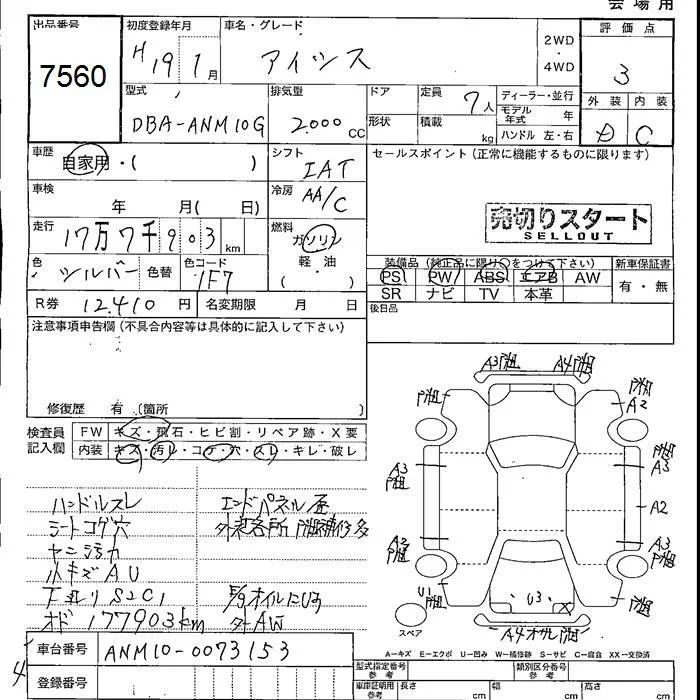 会場用
出品番号
7560
初度登録年月
H 19 1月
車名・グレード
アイシス
2WD
・
4WD
評価点
3
外装 内装
D C
型式
DBA-ANM10G
排気量
2000 cc
ドア
形状
定員
7人
積載
kg
ディーラー・並行
モデル
年式 年
ハンドル 左・右
車歴
自家用・( )
シフト
IAT
セールスポイント(正常に機能するものに限ります)
車検
年 月( 日)
冷房
AA/C
売切りスタート
SELLOUT
走行
17万7千903km
燃料
ガソリン
軽・油
( )
色
シルバー
色替
色コード
1F7
装備品(純正品に限り○をつけて下さい)
PS PW ABS エアB AW
SR ナビ TV 本革
新車保証書
有・無
R券 12.410円
名変期限 月 日
後日品
注意事項申告欄(不具合内容等は具体的に記入して下さい)
修復歴 有 (箇所
検査員
記入欄
FW キズ・飛石・ヒビ割・リペア跡・X要
内装 キズ・汚レ・コゲ・穴・スレ・キレ・破レ
ハンドルスレ
シートコゲ穴
ヤニ汚れ
小キズAU
下廻りS2C1
オド177903km
エンドパネル歪
外装各所 補修多
E/gオイルにじみ
AW
A3 A4
A2
A3 A3
A2
A2 A3
U1
U3 X
A4
スペア
A=キズ E=エクボ U=凹み W=補修跡 S=サビ C=腐食 XX=交換済
車台番号
ANM10-0073153
登録番号
型式指定番号
参考
類別区分番号
参考
車庫証明用
参考
長さ cm
幅 cm
高さ cm